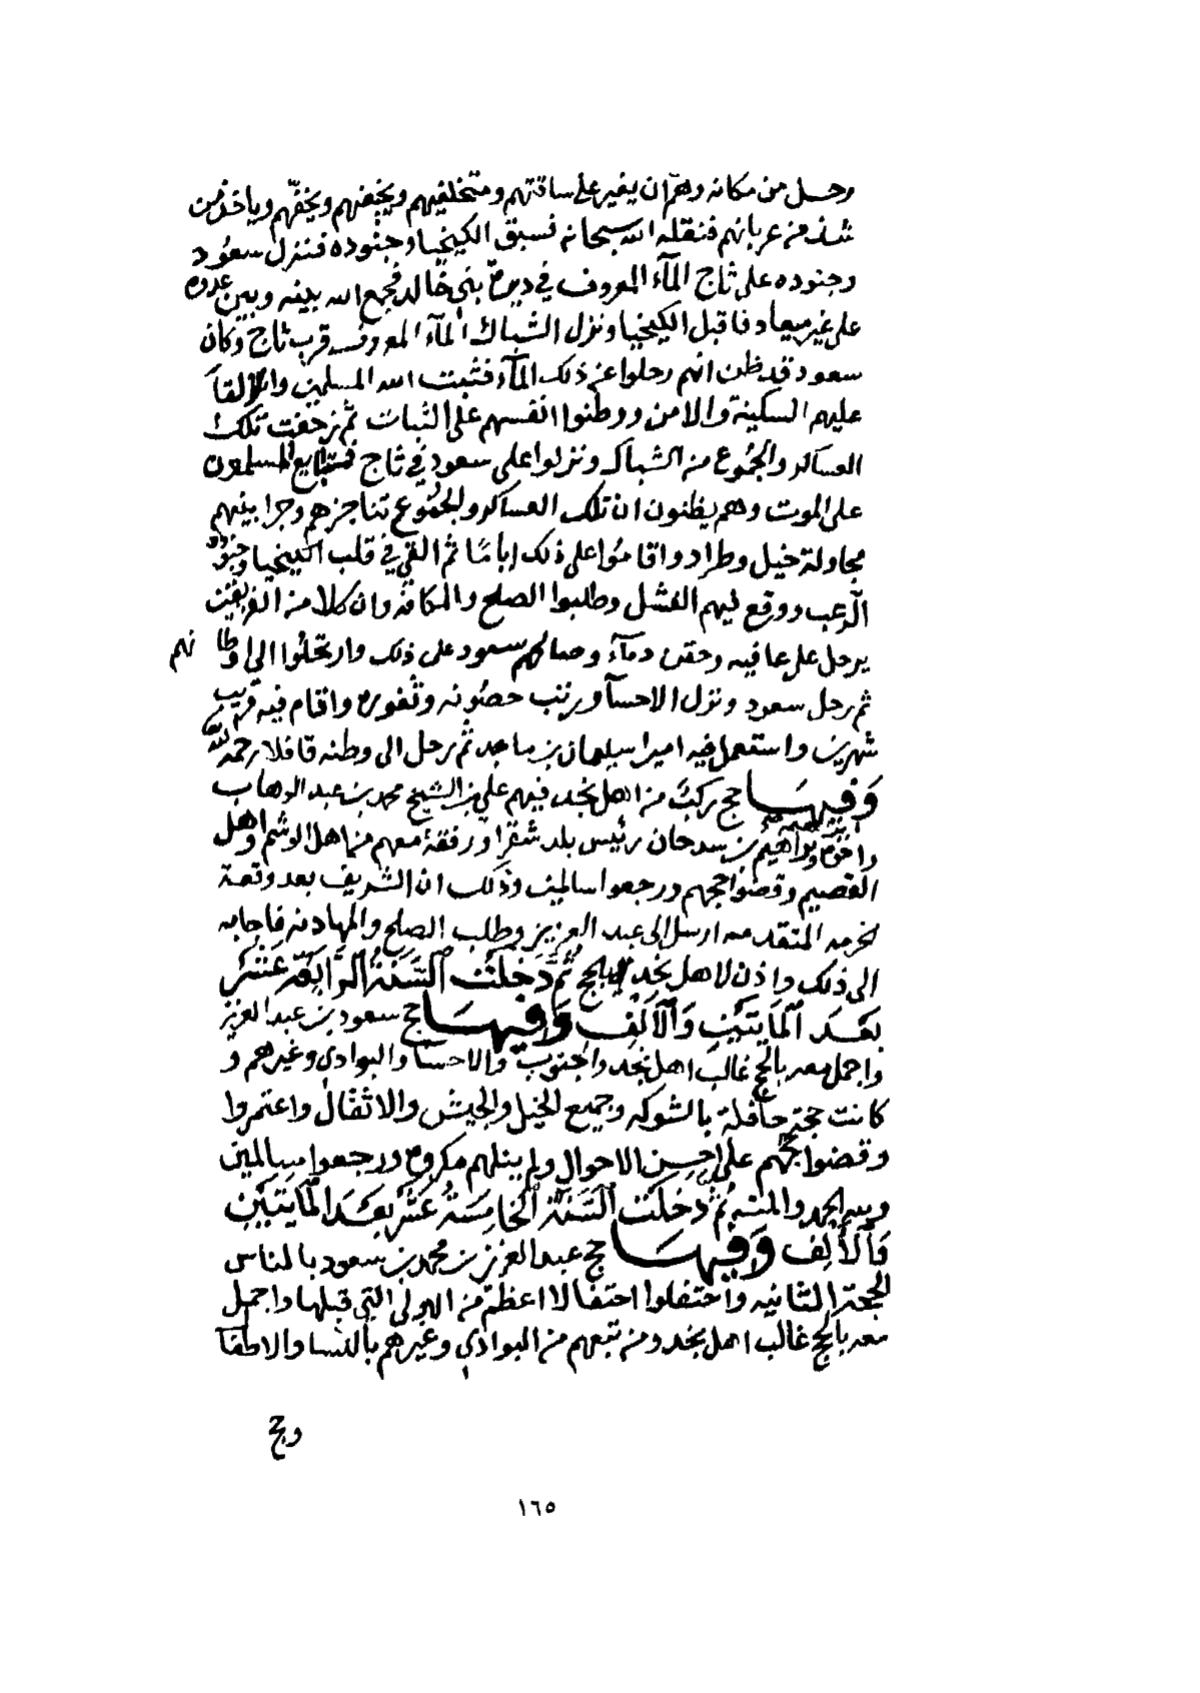 رحل من مكانه وهم ان يغير على ساقتهم ومتخلفيهم ويخيفهم ويحثهم وياخذ من
شذ من عربانهم فنقله الله سبحانه فسبق الكيخيا وجنوده فنزل سعود
وجنوده على ثاج المآء المعروف في ديرة بني خالد فجمع الله بينه وبين عدوه
على غير ميعاد فاقبل الكيخيا ونزل الشباك المآء المعروف قرب ثاج وكان
سعود قد ظن انهم رحلوا عن ذلك المآء فثبت الله المسلمين والقا
عليهم السكينة والامن ووطنوا انفسهم على الثبات ثم زحفت تلك
العساكر والجموع من الشباك ونزلوا على سعود في ثاج فتبايع المسلمون
على الموت وهم يظنون ان تلك العساكر والجموع تناجزهم وجرا بينهم
مجاولة خيل وطراد واقاموا على ذلك اياما ثم القي في قلب الكيخيا وجنوده
الرعب ووقع فيهم الفشل وطلبوا الصلح والمكافه وان كلا من الفريقين
يرحل على عافيه وحقن دمآء وصالهم سعود على ذلك وارتحلوا الى اوطانهم
ثم رحل سعود ونزل الاحسآ ورتب حصونه وثغوره واقام فيه قريب
شهرين واستعمل فيه اميرا سليمان بن ماجد ثم رحل الى وطنه قافلا رحمه الله
وفيها حج ركب من اهل نجد فيهم علي بن الشيخ محمد بن عبد الوهاب
واخوه ابراهيم بن سدحان رئيس بلد شقرا ورفقة معهم من اهل الوشم واهل
القصيم وقضوا حجهم ورجعوا سالمين وذلك ان الشريف بعد وقعة
الخرمه المتقدمه ارسل الى عبد العزيز وطلب الصلح والمهادنه فاجابه
الى ذلك واذن لاهل نجد بالحج ثم دخلت السنة الرابعة عشر
بعد المايتين والالف وفيها حج سعود بن عبد العزيز
واجمل معه بالحج غالب اهل نجد والجنوب والاحسا والبوادي وغيرهم و
كانت حجة حافلة بالشوكه وجميع الخيل والجيش والاثقال واعتمروا
وقضوا حجهم على احسن الاحوال ولم ينلهم مكروه ورجعوا سالمين
ولله الحمد والمنه ثم دخلت السنة الخامسة عشر بعد المايتين
والالف وفيها حج عبد العزيز بن محمد بن سعود بالناس
الحجة الثانيه واحتفلوا احتفالا اعظم من الاولى التي قبلها واجمل
معه بالحج غالب اهل نجد ومن تبعهم من البوادي وغيرهم بالنسا والاطفا
وحج
١٦٥